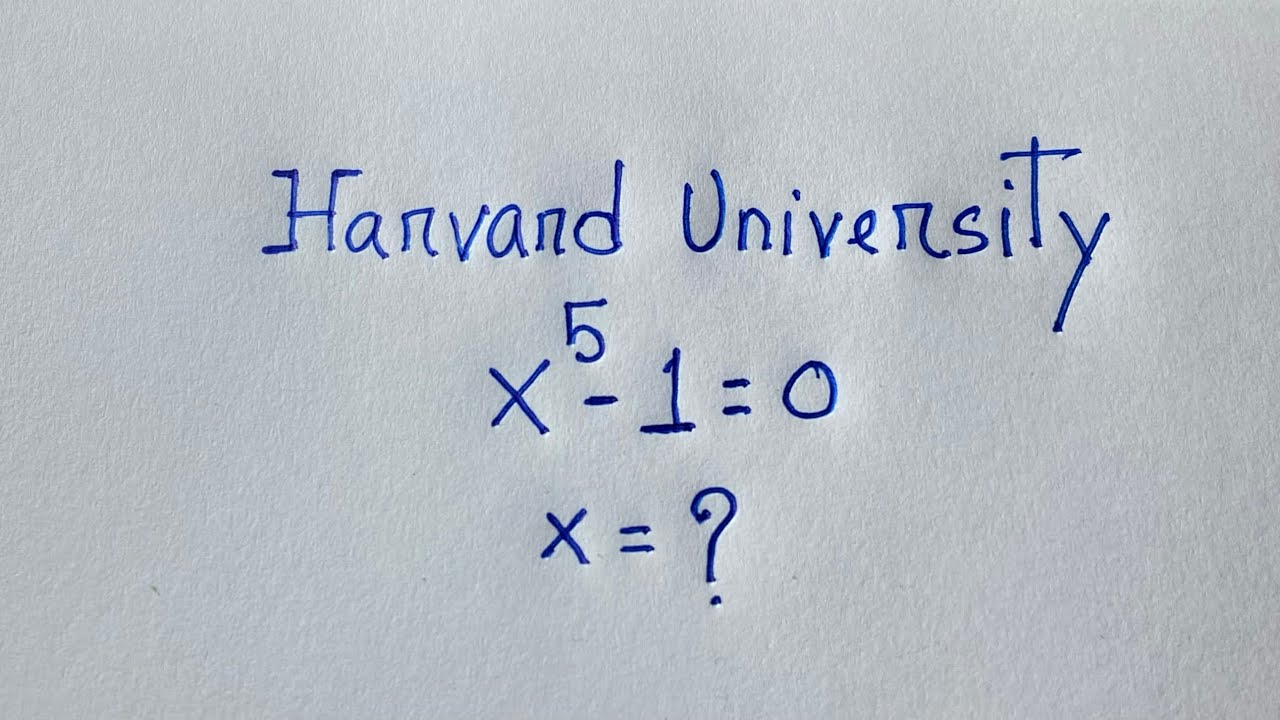 Harvard University
x⁵-1=0
x=?